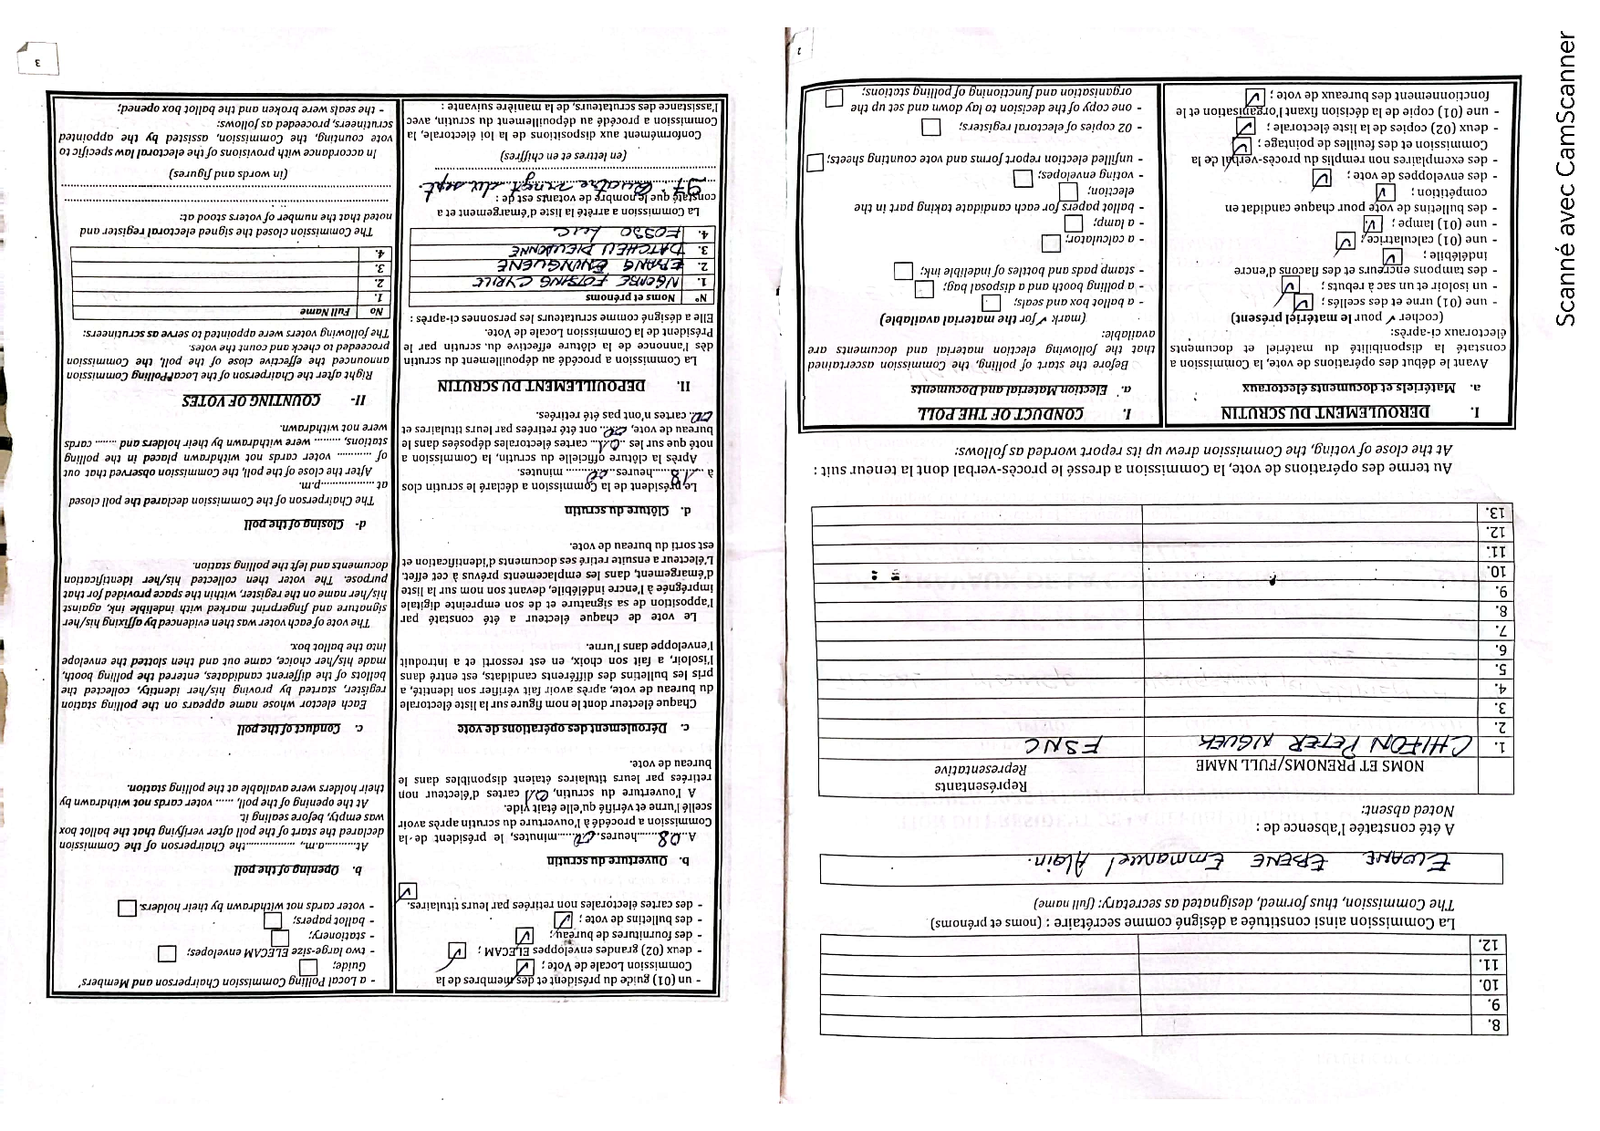 8.
9.
10.
11.
12.
La Commission ainsi constituée a désigné comme secrétaire : (noms et prénoms)
The Commission, thus formed, designated as secretary: (full name)
EBENE Emmanuel Alain.
A été constatée l'absence de :
Noted absent:
NOMS ET PRENOMS/FULL NAME
Représentants
Representative
1. CHIFON PETER NGUEK FSNC
2.
3.
4.
5.
6.
7.
8.
9.
10.
11.
12.
13.
Au terme des opérations de vote, la Commission a dressé le procès-verbal dont la teneur suit :
At the close of voting, the Commission drew up its report worded as follows.
I. DEROULEMENT DU SCRUTIN
a. Matériels et documents électoraux
Avant le début des opérations de vote, la Commission a
constaté la disponibilité du matériel et documents
électoraux ci-après:
(cocher ✓ pour le matériel présent)
- une (01) urne et des scellés ;
- un isoloir et un sac à rebuts ;
- des tampons encreurs et des flacons d'encre
indélébile ;
- une (01) calculatrice ;
- une (01) lampe ;
- des bulletins de vote pour chaque candidat en
compétition ;
- des enveloppes de vote ;
- des exemplaires non remplis du procès-verbal de la
Commission et des feuilles de pointage ;
- deux (02) copies de la liste électorale ;
- une (01) copie de la décision fixant l'organisation et le
fonctionnement des bureaux de vote ;
I. CONDUCT OF THE POLL
a. Election Material and Documents
Before the start of polling, the Commission ascertained
that the following election material and documents are
available:
(mark ✓ for the material available)
- a ballot box and seals;
- a polling booth and a disposal bag;
- stamp pads and bottles of indelible ink;
- a calculator;
- a lamp;
- ballot papers for each candidate taking part in the
election;
- voting envelopes;
- unfilled election report forms and vote counting sheets;
- 02 copies of electoral registers;
- one copy of the decision to lay down and set up the
organisation and functioning of polling stations;
2
- un (01) guide du président et des membres de la
Commission Locale de Vote ;
- deux (02) grandes enveloppes ELECAM ;
- des fournitures de bureau;
- des bulletins de vote ;
- des cartes électorales non retirées par leurs titulaires.
b. Ouverture du scrutin
A..08......heures..00.....minutes, le président de la
Commission a procédé à l'ouverture du scrutin après avoir
scellé l'urne et vérifié qu'elle était vide.
A l'ouverture du scrutin, 01 cartes d'électeur non
retirées par leurs titulaires étaient disponibles dans le
bureau de vote.
c. Déroulement des opérations de vote
Chaque électeur dont le nom figure sur la liste électorale
du bureau de vote, après avoir fait vérifier son identité, a
pris les bulletins des différents candidats, est entré dans
l'isoloir, a fait son choix, en est ressorti et a introduit
l'enveloppe dans l'urne.
Le vote de chaque électeur a été constaté par
l'apposition de sa signature et de son empreinte digitale
imprégnée à l'encre indélébile, devant son nom sur la liste
d'émargement, dans les emplacements prévus à cet effet.
L'électeur a ensuite retiré ses documents d'identification et
est sorti du bureau de vote.
d. Clôture du scrutin
Le président de la Commission a déclaré le scrutin clos
à ..18.....heures..00...... minutes.
Après la clôture officielle du scrutin, la Commission a
noté que sur les ..01.. cartes électorales déposées dans le
bureau de vote, ..00.. ont été retirées par leurs titulaires et
..00.. cartes n'ont pas été retirées.
II. DEROUILLEMENT DU SCRUTIN
La Commission a procédé au dépouillement du scrutin
dès l'annonce de la clôture effective du scrutin par le
Président de la Commission Locale de Vote.
Elle a désigné comme scrutateurs les personnes ci-après :
N° Noms et prénoms
1. FOTSING CYRILE
2.
3. DATCHEU DIEUDONNE
4. FOSSO Luc
La Commission a arrêté la liste d'émargement et a
constaté que le nombre de votants est de :
97. Quatre vingt dix sept.
(en lettres et en chiffres)
Conformément aux dispositions de la loi électorale, la
Commission a procédé au dépouillement du scrutin, avec
l'assistance des scrutateurs, de la manière suivante :
- a Local Polling Commission Chairperson and Members'
Guide;
- two large-size ELECAM envelopes;
- stationery;
- ballot papers;
- voter cards not withdrawn by their holders.
b. Opening of the poll
At...........a.m., ...............the Chairperson of the Commission
declared the start of the poll after verifying that the ballot box
was empty, before sealing it.
At the opening of the poll, ...... voter cards not withdrawn by
their holders were available at the polling station.
c. Conduct of the poll
Each elector whose name appears on the polling station
register, started by proving his/her identity, collected the
ballots of the different candidates, entered the polling booth,
made his/her choice, came out and then slotted the envelope
into the ballot box.
The vote of each voter was then evidenced by affixing his/her
signature and fingerprint marked with indelible ink, against
his/her name on the register, within the space provided for that
purpose. The voter then collected his/her identification
documents and left the polling station.
d- Closing of the poll
The Chairperson of the Commission declared the poll closed
at..................p.m.
After the close of the poll, the Commission observed that out
of ........... voter cards not withdrawn placed in the polling
stations, ......... were withdrawn by their holders and ....... cards
were not withdrawn.
II- COUNTING OF VOTES
Right after the Chairperson of the Local Polling Commission
announced the effective close of the poll, the Commission
proceeded to check and count the votes.
The following voters were appointed to serve as scrutineers:
No Full Name
1.
2.
3.
4.
The Commission closed the signed electoral register and
noted that the number of voters stood at:
(in words and figures)
In accordance with provisions of the electoral law specific to
vote counting, the Commission, assisted by the appointed
scrutineers, proceeded as follows:
- the seals were broken and the ballot box opened;
3
Scanné avec CamScanner